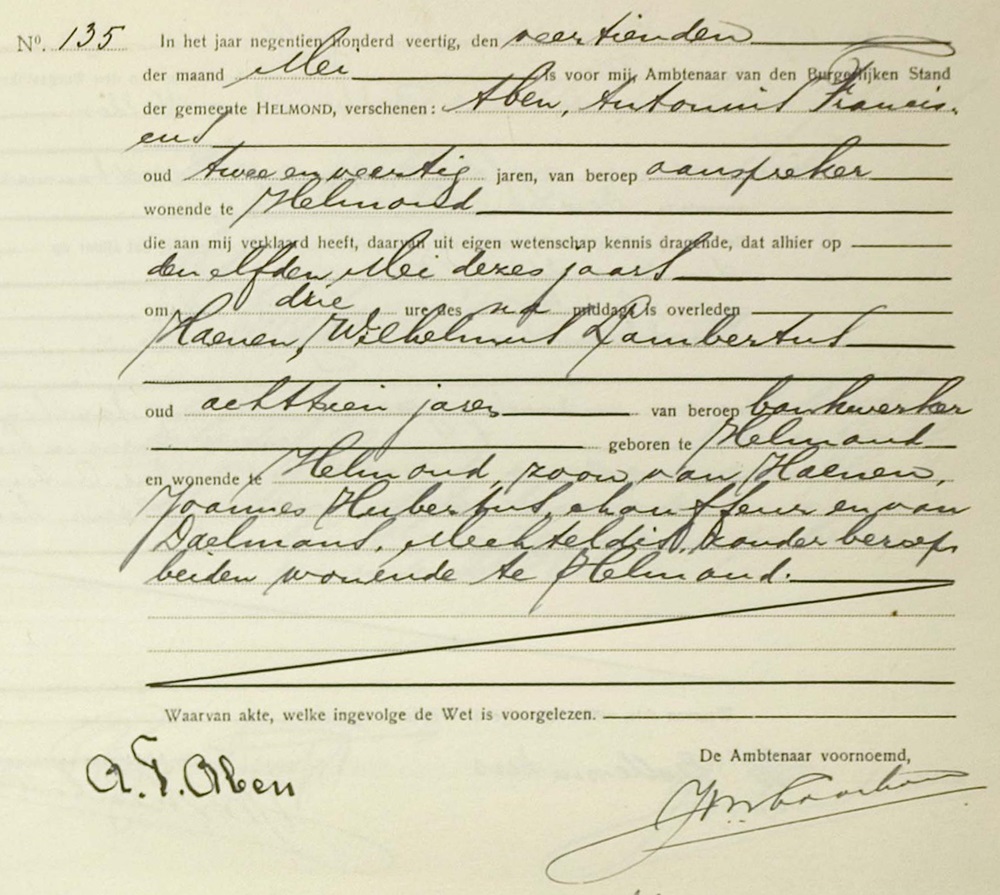 No. 135 In het jaar negentien honderd veertig, den veertienden
der maand Mei is voor mij, Ambtenaar van den Burgerlijken Stand
der gemeente HELMOND, verschenen: Aben, Antonius Francis-
cus
oud twee en veertig jaren, van beroep aanspreker
wonende te Helmond
die aan mij verklaard heeft, daarvan uit eigen wetenschap kennis dragende, dat alhier op
den elfden Mei dezes jaars
om drie ure des na middags is overleden
Haenen, Wilhelmus Lambertus
oud achttien jaren van beroep bankwerker
geboren te Helmond
en wonende te Helmond, zoon van Haenen,
Joannes Hubertus, chauffeur en van
Daelmans, Mechteldis, zonder beroep
beiden wonende te Helmond.
Waarvan akte, welke ingevolge de Wet is voorgelezen.
De Ambtenaar voornoemd,
A. F. Aben